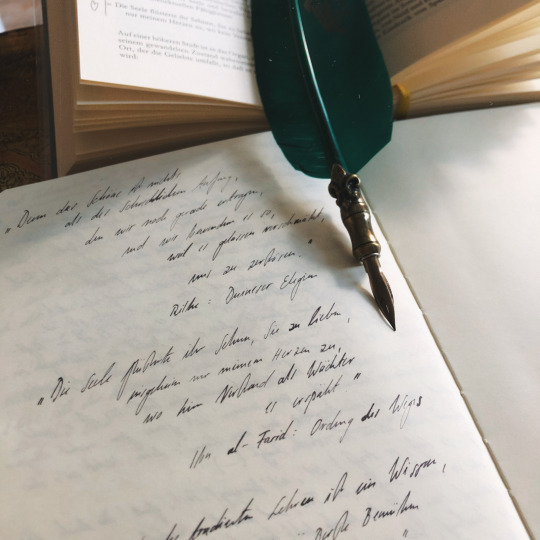 Die Seele flüsterte ihr
nur meinem Herzen zu, wo kein
Auf einer höheren Stufe ist es das
seinem gewandelten Zustand
Ort, der die Geheimnisse
wird:
"Denn das Schöne ist nichts
als des Schrecklichen Anfang,
den wir noch gerade ertragen,
und wir bewundern es so,
weil es gelassen verschmäht,
uns zu zerstören."
Rilke: Duineser Elegien
"Die Seele flüsterte ihr Sehnen, Sie zu lieben,
insgeheim nur meinem Herzen zu,
wo kein Verstand als Wächter
es erspäht."
Ibn al-Farid: Ordnung des Wegs
tradierten Lehren ist ein Wissen,
Bemühen
"